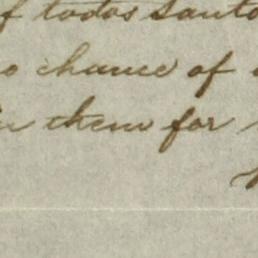 of todos Santo
chance of
them for